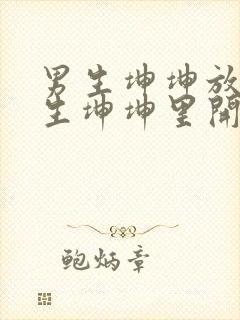 男生坤坤放
生坤坤里開
鲍炳章